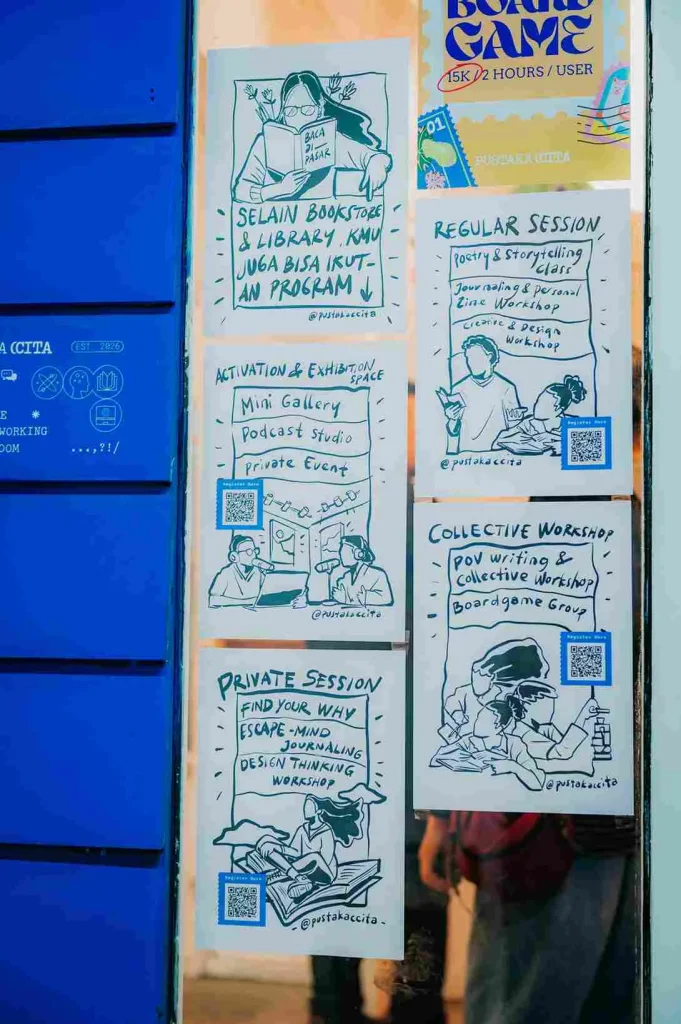 BOARD
GAME
15K / 2 HOURS / USER
01
PUSTAKA CCITA
BACA
DI
PASAR
SELAIN BOOKSTORE
& LIBRARY, KMU
JUGA BISA IKUT-
AN PROGRAM ↓
@pustakaccita
REGULAR SESSION
Poetry & Storytelling
Class
Journaling & Personal
Zine Workshop
Creative & Design
Workshop
Register Here
@pustakaccita
ACTIVATION & EXHIBITION
SPACE
Mini Gallery
Podcast Studio
Private Event
Register Here
@pustakaccita
COLLECTIVE WORKSHOP
POV writing &
Collective Workshop
Boardgame Group
Register Here
@pustakaccita
PRIVATE SESSION
FIND YOUR WHY
ESCAPE-MIND
JOURNALING
DESIGN THINKING
WORKSHOP
Register Here
- @pustakaccita -
A (CITA
EST. 2026
E *
WORKING
OOM ....,?!/